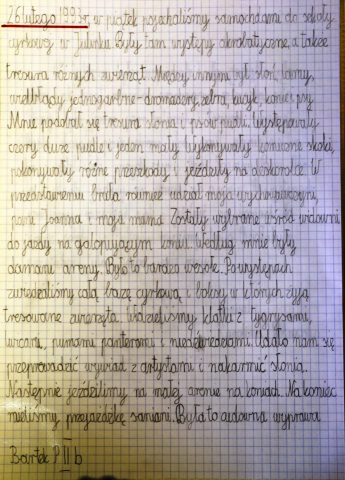 26 lutego 1993r. w piątek pojechaliśmy samochodami do szkoły
cyrkowej w Julinku. Były tam występy akrobatyczne, a także
tresura różnych zwierząt. Między innymi był słoń, lamy,
wielbłądy jednogarbne - dromadery, zebra, kucyk, konie i psy.
Mnie podobał się tresura słonia i psów pudli. Występowały
cztery duże pudle i jeden mały. Wykonywały komiczne skoki,
pokonywały różne przeszkody i jeździły na deskorolce. W
przedstawieniu brała również udział moja wychowawczyni,
pani Joanna i moja mama. Zostały wybrane wśród widowni
do jazdy na galopującym koniu. Według mnie były
damami areny. Było to bardzo wesołe. Po występach
zwiedzaliśmy całą bazę cyrkową i boksy w których żyją
tresowane zwierzęta. Widzieliśmy klatki z tygrysami,
lwami, pumami panterami i niedźwiedziami. Udało nam się
przeprowadzić wywiad z artystami i nakarmić słonia.
Następnie jeździliśmy na małej arenie na koniach. Na koniec
mieliśmy przejażdżkę saniami. Była to cudowna wyprawa
Bartek P II b